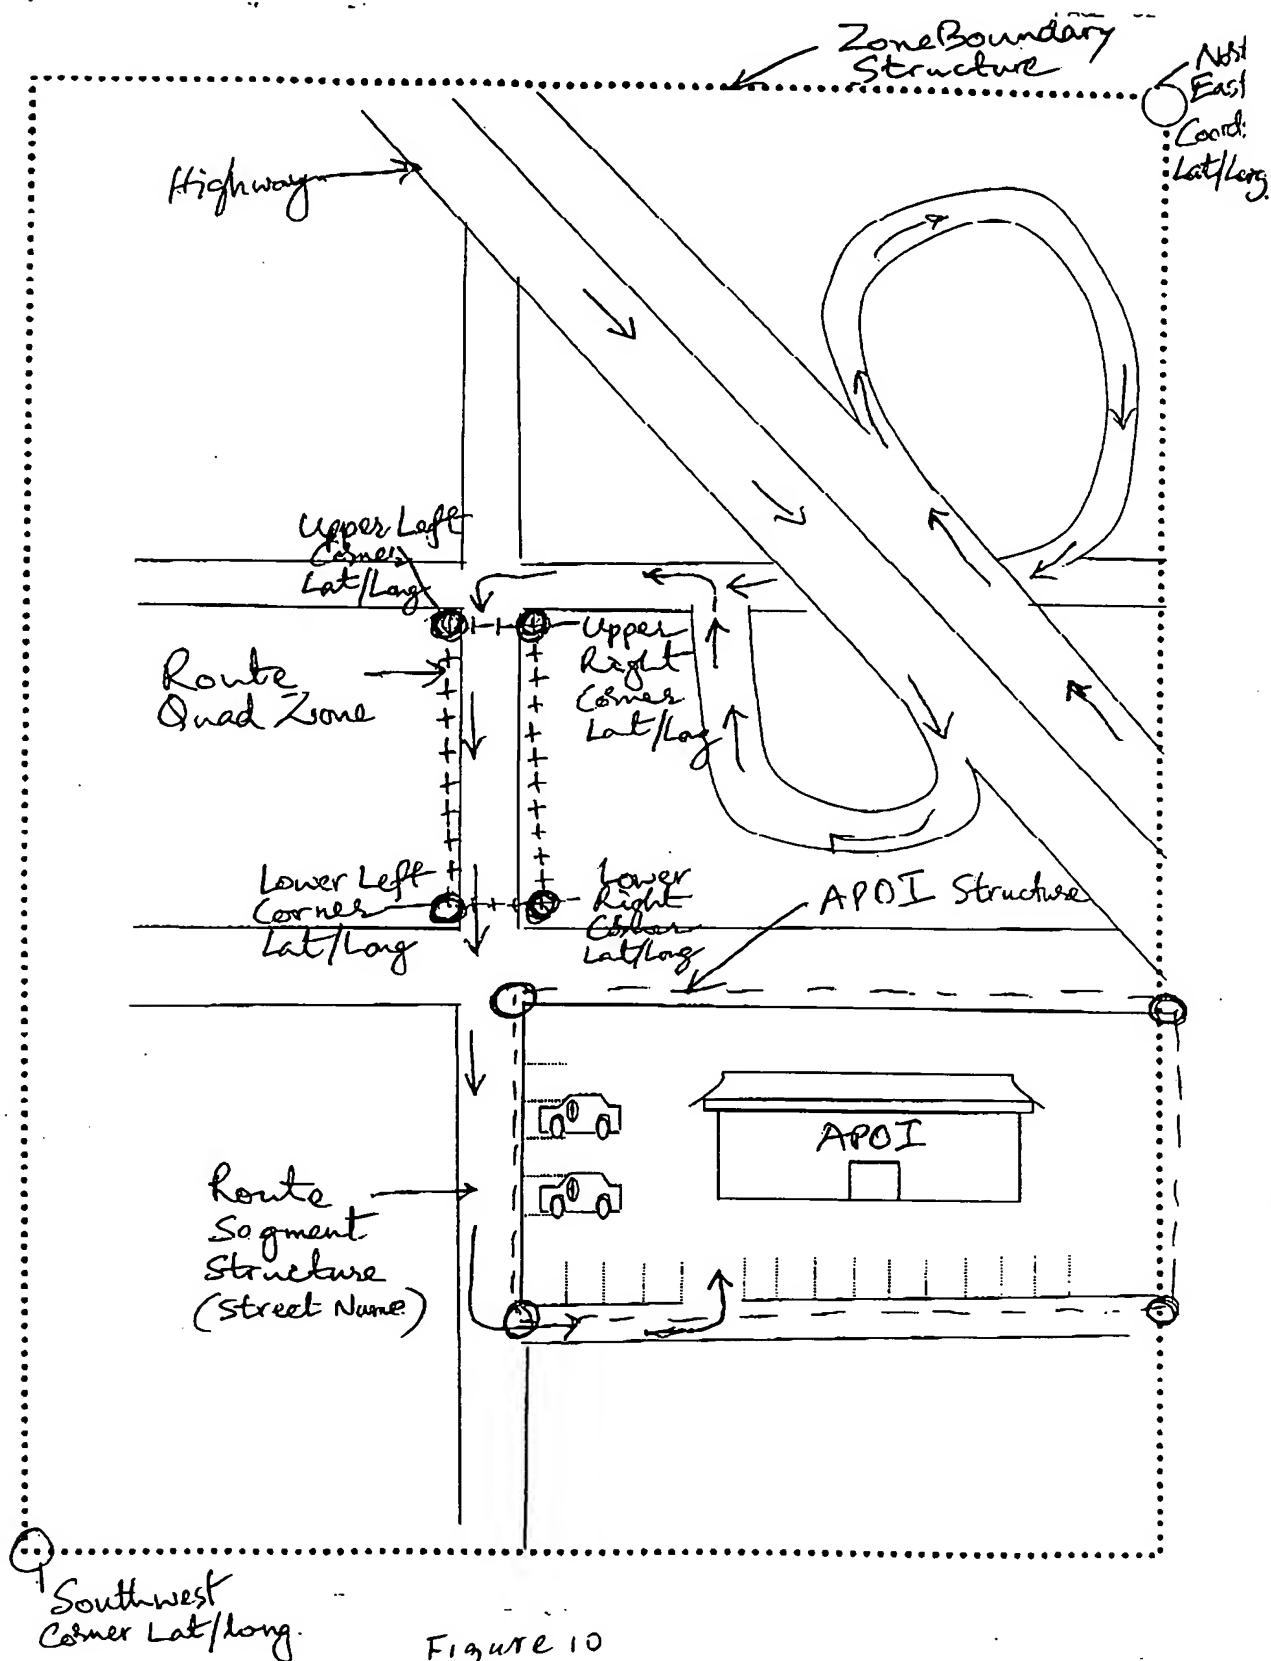 ZoneBoundary
Structure
East
Coord:
Lat/Long.
Highway
Upper Left
Corner
Lat/Long
Upper
Right
Corner
Lat/Long
Route
Quad Zone
Lower Left
Corner
Lat/Long
Lower
Right
Corner
Lat/Long
APOI Structure
APOI
Route
Segment
Structure
(Street Name)
Southwest
Corner Lat/Long.
Figure 10